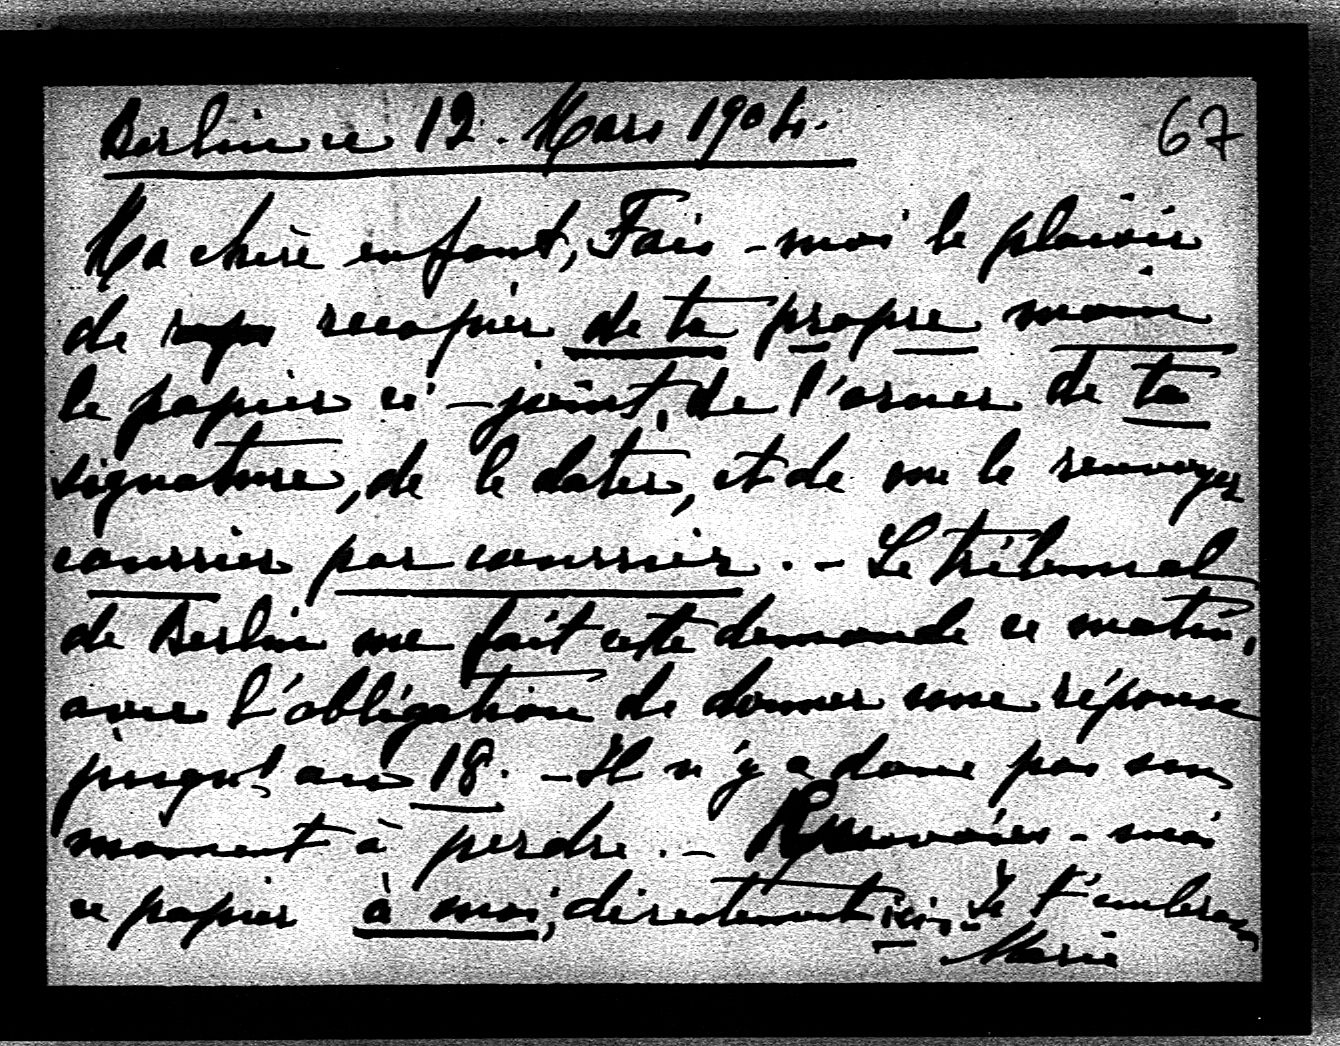 Berlin ce 12. Mars 1904.
67
Ma chère enfant, Fais-moi le plaisir
de recopier de ta propre main
le papier ci-joint, de l'orner de ta
signature, de le dater, et de me le renvoyer
courrier par courrier. - Le tribunal
de Berlin me fait cette demande ce matin,
avec l'obligation de donner une réponse
jusqu'au 18. - Il n'y a donc pas un
moment à perdre. - Renvoies-moi
ce papier à moi, directement ici. - Je t'embrasse
Marie